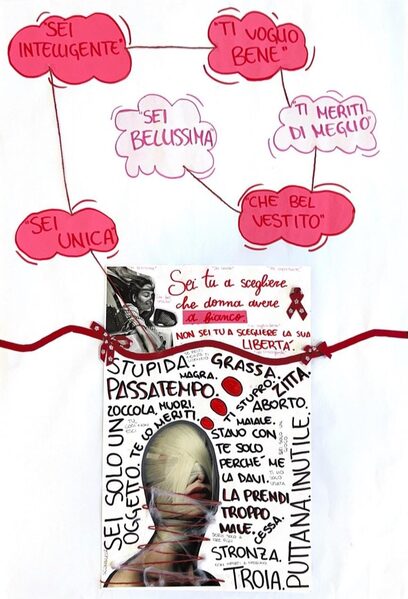 "SEI
INTELLIGENTE"
"TI VOGLIO
BENE"
"SEI
BELLISSIMA"
"TI MERITI
DI MEGLIO"
"SEI
UNICA"
"CHE BEL
VESTITO"
Sei tu a scegliere
che donna avere
a fianco.
NON SEI TU A SCEGLIERE LA SUA
LIBERTÀ.
STUPIDA.
MAGRA.
GRASSA.
ZITTA.
PASSATEMPO.
TI STUPRO.
ABORTO.
ZOCCOLA.
MUORI.
TE LO MERITI.
MAIALE.
SEI SOLO UN
OGGETTO.
STAVO CON
TE SOLO
PERCHÉ ME
LA DAVI.
LA PRENDI
TROPPO
MALE.
CESSA.
STRONZA.
TROIA.
PUTTANA. INUTILE.